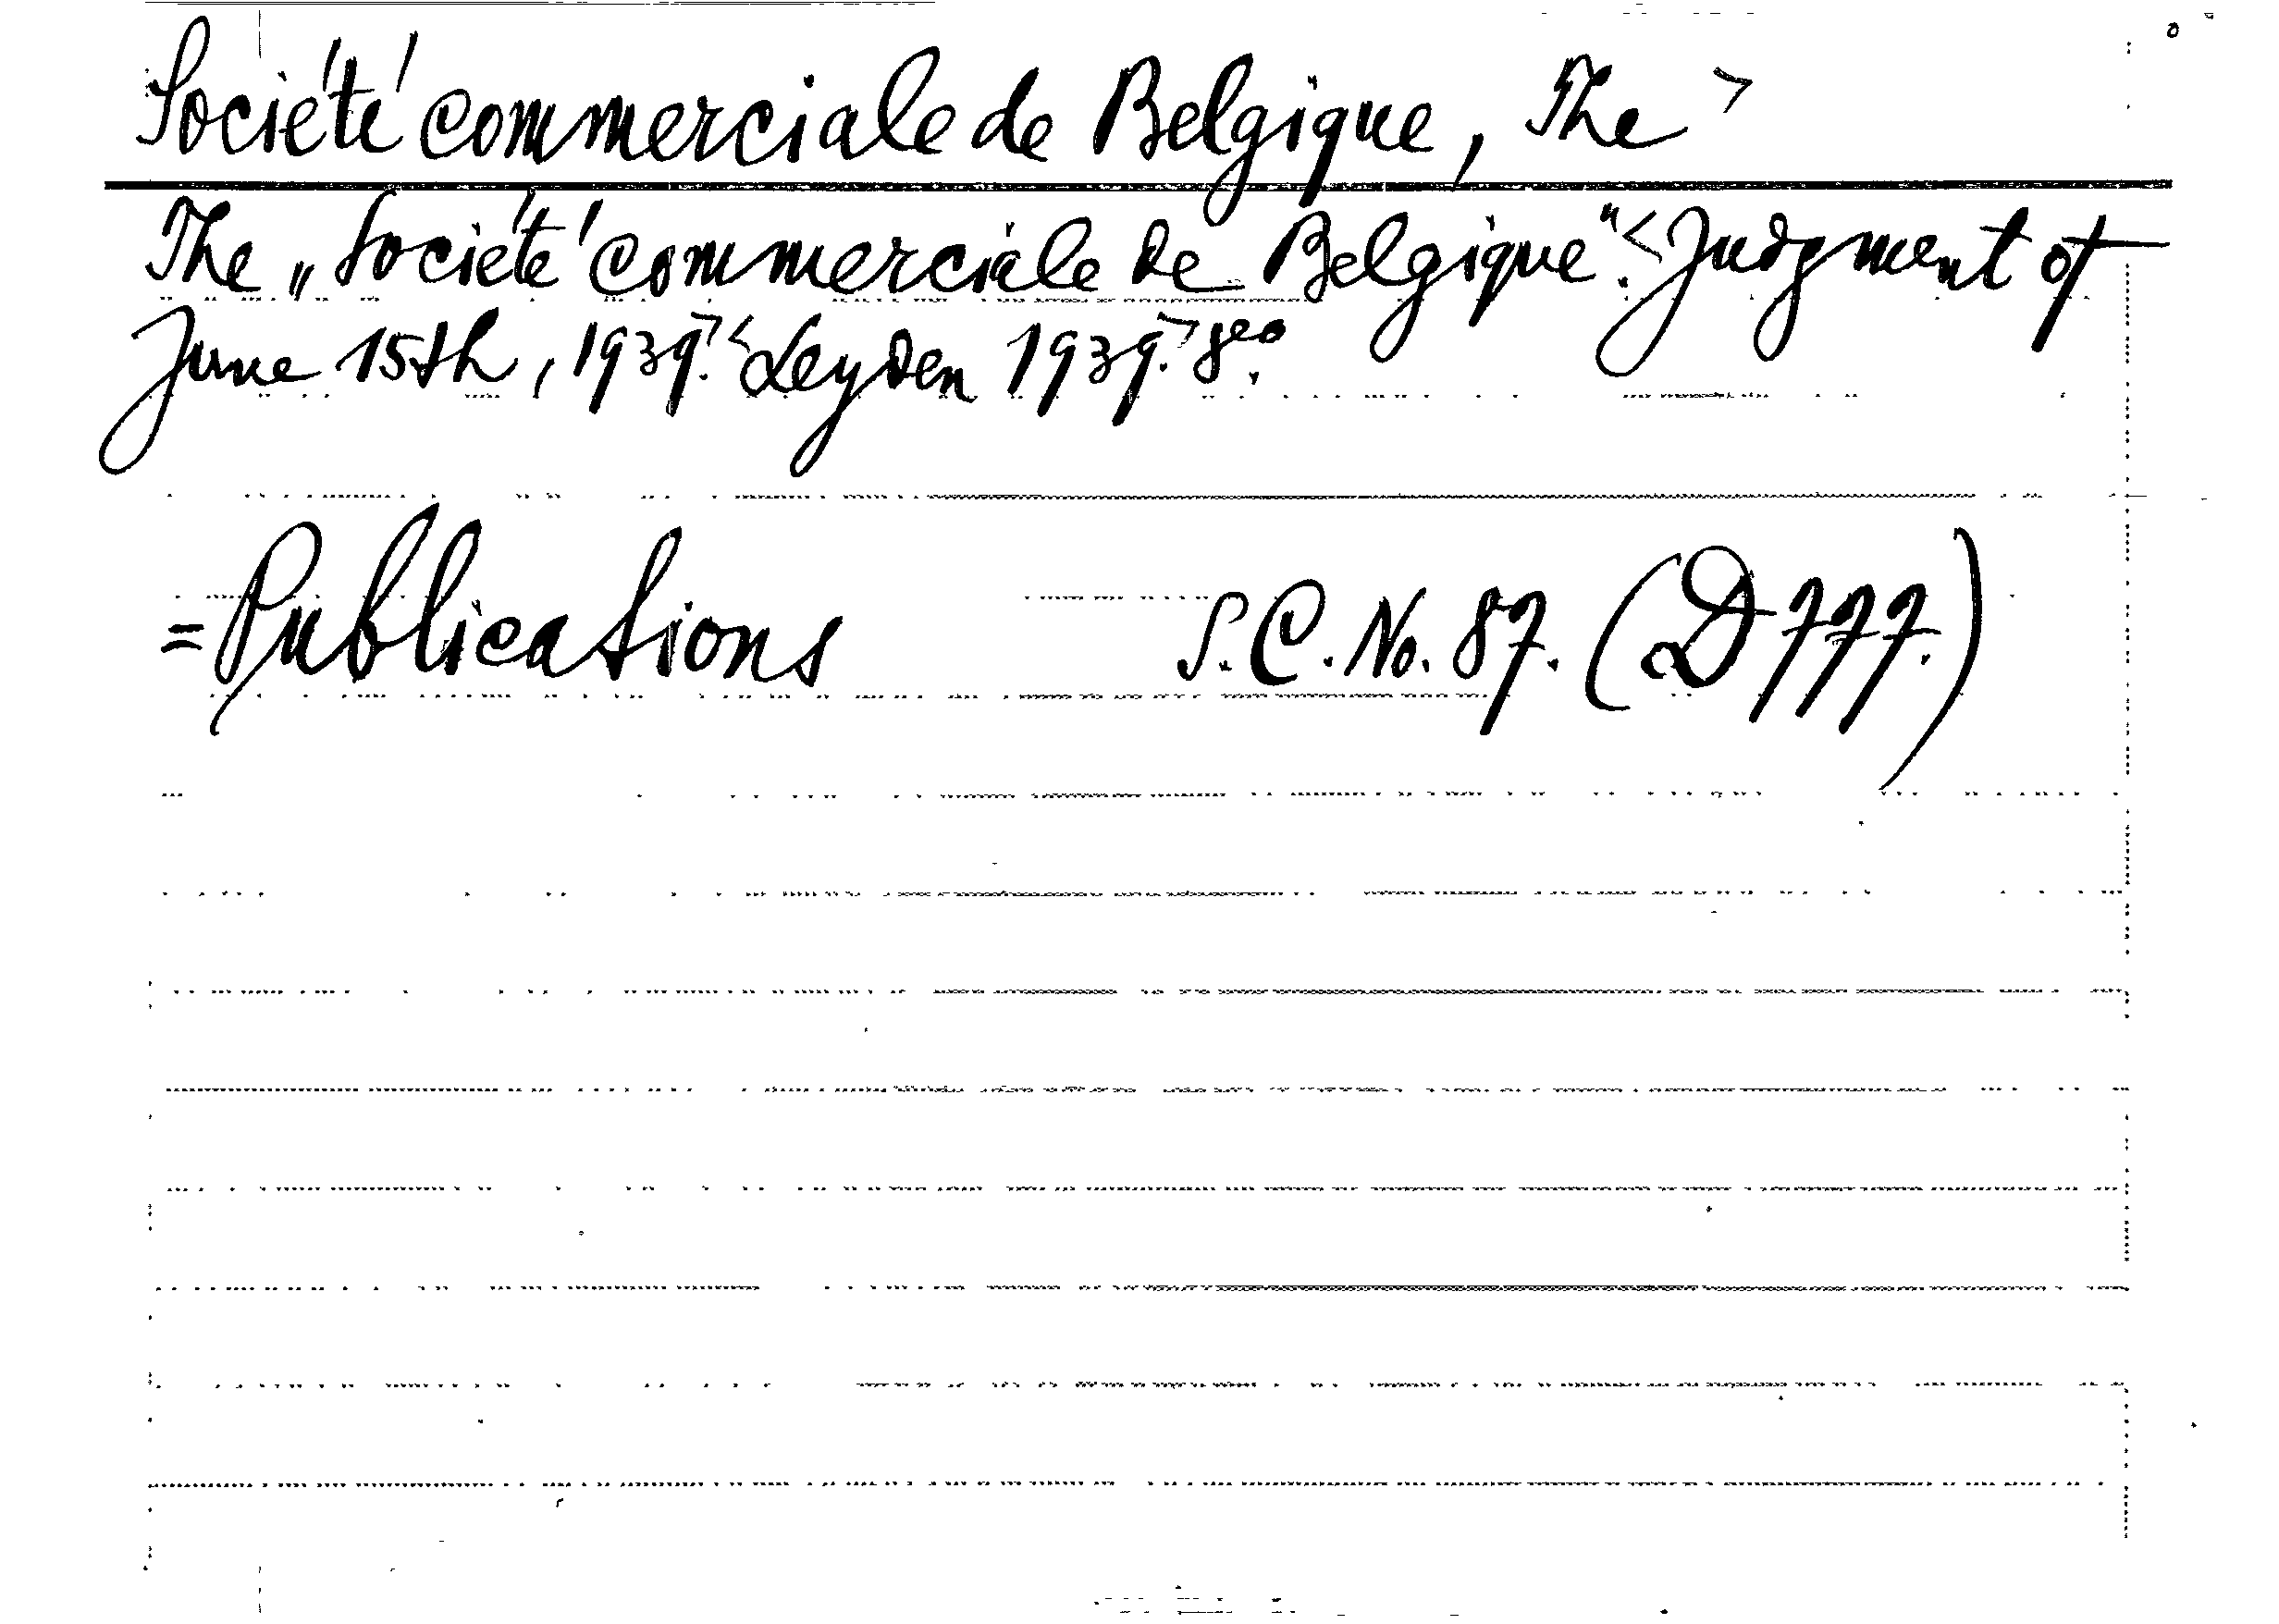 Société commerciale de Belgique, The >
The „Société commerciale de Belgique“. < Judgment of
June 15th, 1939. > < Leyden 1939. > 8eo.
= Publications S. C. No. 87. (D 777.)